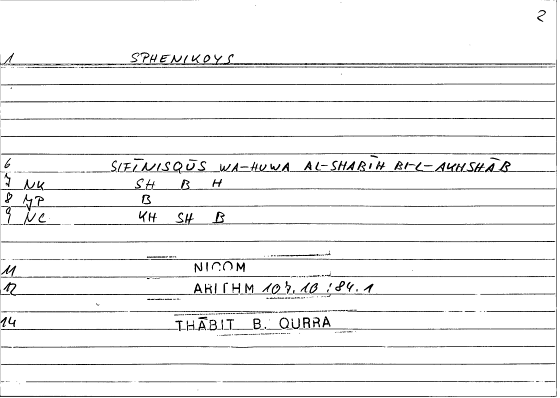 2
1 SPHENIKOYS
6 SIFĪNISQŪS WA-HUWA AL-SHABĪH BI-L-AKHSHĀB
7 NK SH B H
8 JP B
9 NC KH SH B
11 NICOM
12 ARITHM 107.10 : 84.1
14 THĀBIT B. QURRA